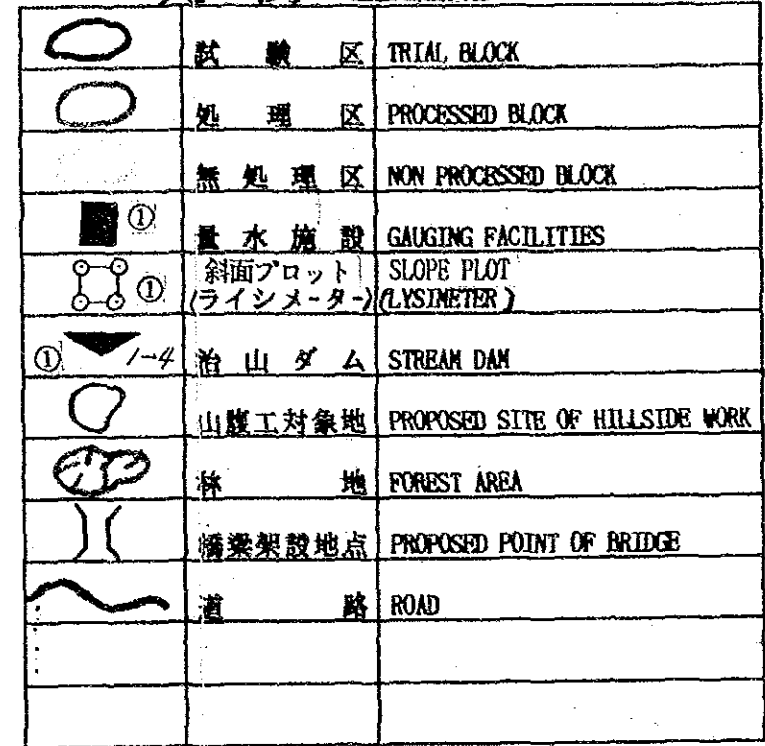 試験区 TRIAL BLOCK
処理区 PROCESSED BLOCK
無処理区 NON PROCESSED BLOCK
① 量水施設 GAUGING FACILITIES
斜面プロット SLOPE PLOT
① (ライシメーター) (LYSIMETER)
① 1-4 治山ダム STREAM DAM
山腹工対象地 PROPOSED SITE OF HILLSIDE WORK
林地 FOREST AREA
橋梁架設地点 PROPOSED POINT OF BRIDGE
道路 ROAD